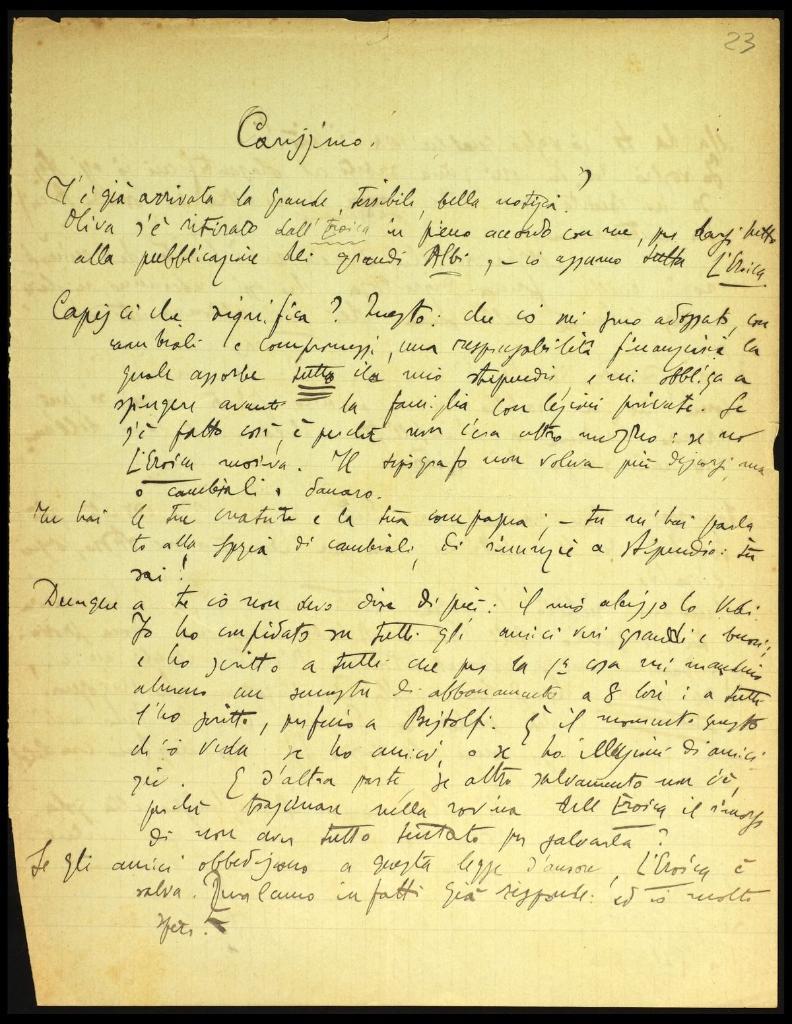 23
Carissimo.
T'è già arrivata la grande, terribile, bella notizia?
Oliva s'è ritirato dall'Eroica in pieno accordo con me, per darsi tutto
alla pubblicazione dei grandi Albi, – io assumo tutta L'Eroica.
Capisci che significa? Questo: che io mi sono addossato, con
cambiali e compromessi, una responsabilità finanziaria la
quale assorbe tutto il mio stipendio, e mi obbliga a
spingere avanti la famiglia con lezioni private. Se
s'è fatto così, è perchè non c'era altro mezzo: se no
L'Eroica moriva. Il tipografo non voleva più ma
o cambiali o danaro.
Tu hai le tue creature e la tua compagna; – tu m'hai parla
to alla Spezia di cambiali, di rinunzie a stipendio: tu
sai!
Dunque a te io non devo dire di più: il mio a lo vedi.
Io ho confidato su tutti gli amici veri grandi e buoni;
e ho scritto a tutti che per la 1ª cosa mi mandino
almeno un semestre di abbonamento a 8 lire: a tutti
l'ho scritto, perfino a Bistolfi. È il momento questo
ch'io veda se ho amici, o se ho illusioni di amici
zie. E d'altra parte, se altro salvamento non c'è,
perchè trascinare nella rovina dell'Eroica il rimorso
di non aver tutto tentato per salvarla?
Se gli amici obbediscono a questa legge d'amore, L'Eroica è
salva. infatti già risponde: ed io molto
spero.